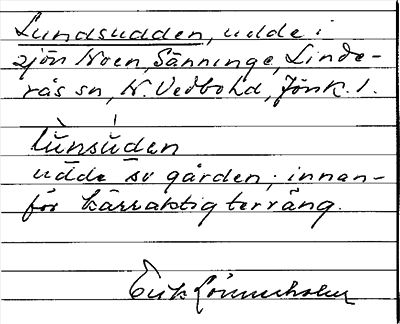 Lundsudden, udde i
sjön Noen, Sänninge, Linde-
rås sn, N. Vedbo hd, Jönk. l.
lùnsúden
udde sv gården; innan-
för kärraktig terräng.
Erik Lönnerholm